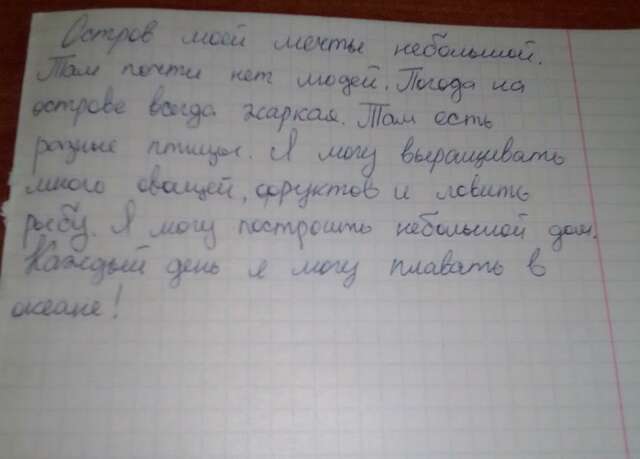 Остров моей мечты небольшой.
Там почти нет людей. Погода на
острове всегда жаркая. Там есть
разные птицы. Я могу выращивать
много овощей, фруктов и ловить
рыбу. Я могу построить небольшой дом.
Каждый день я могу плавать в
океане!